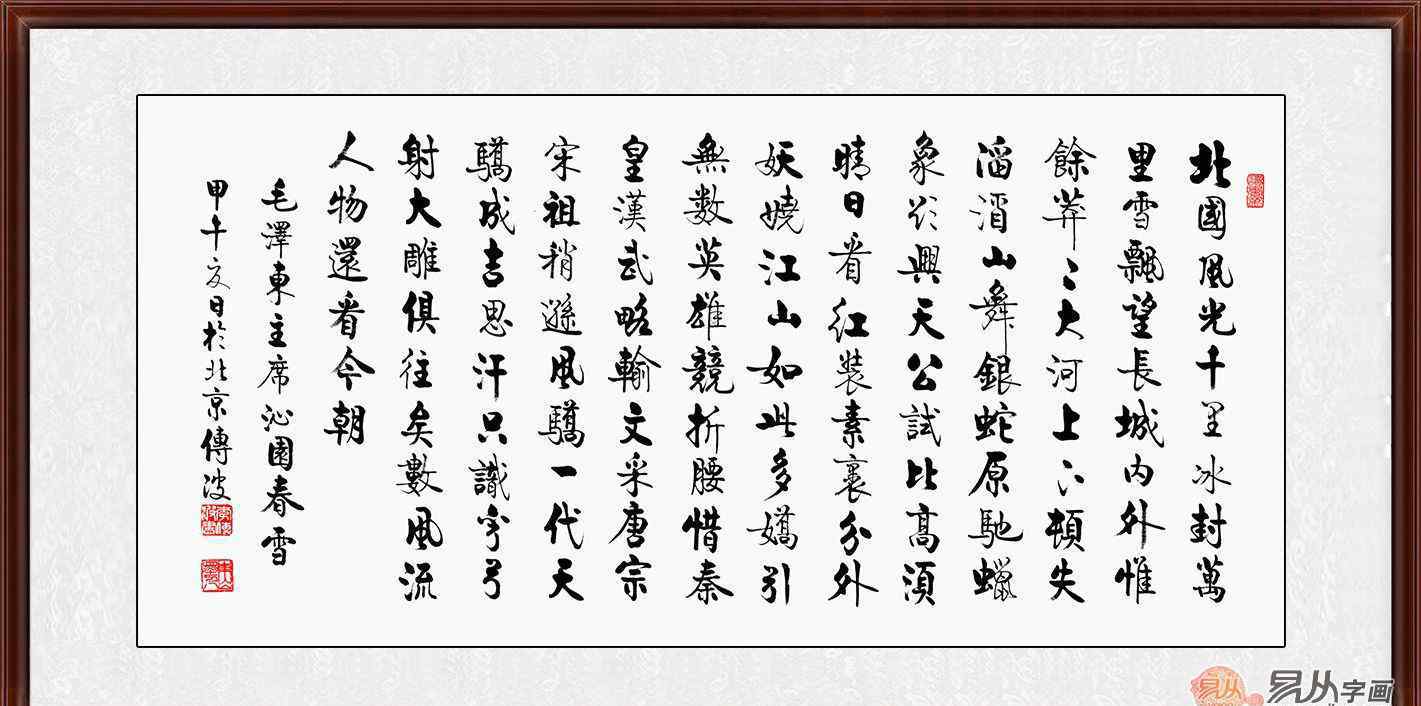 北國風光千里冰封萬
里雪飄望長城內外惟
餘莽〻大河上下頓失
滔滔山舞銀蛇原馳蠟
象欲與天公試比高須
晴日看紅裝素裹分外
妖嬈江山如此多嬌引
無數英雄競折腰惜秦
皇漢武略輸文采唐宗
宋祖稍遜風騷一代天
驕成吉思汗只識彎弓
射大雕俱往矣數風流
人物還看今朝
毛澤東主席沁園春雪
甲午夏日於北京傳波
易从
易从字画